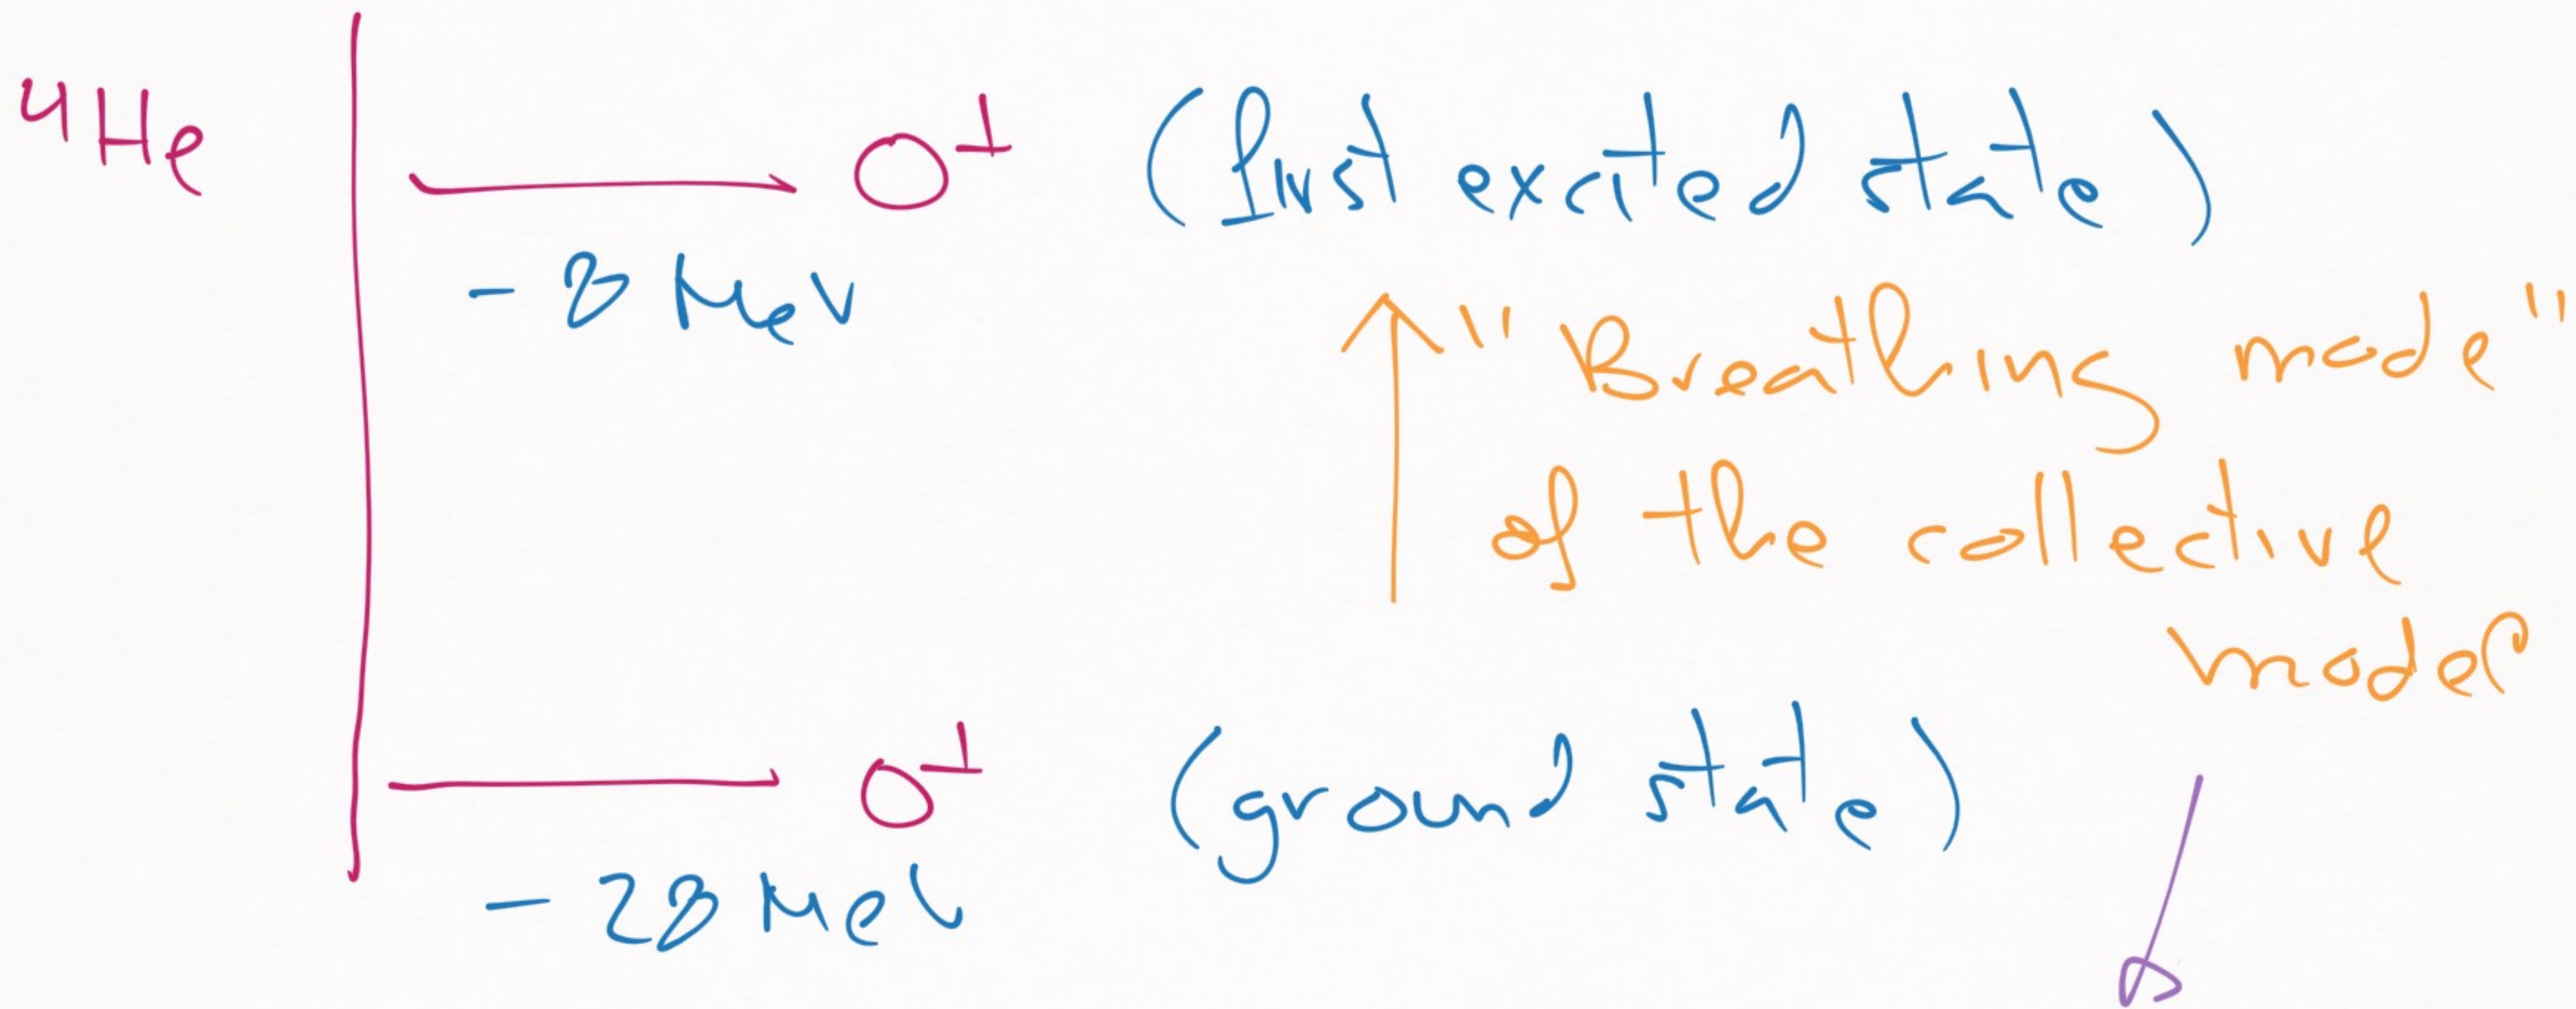 ⁴He
0⁺ (first excited state)
- 8 MeV
"Breathing mode"
of the collective
model
0⁺ (ground state)
- 28 MeV